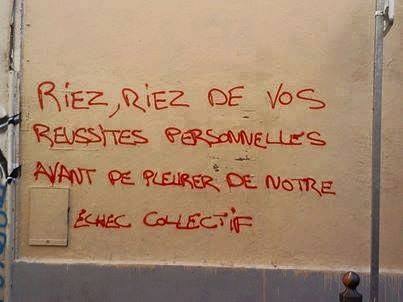 RIEZ, RIEZ DE VOS
REUSSITES PERSONNELLES
AVANT DE PLEURER DE NOTRE
ÉCHEC COLLECTIF